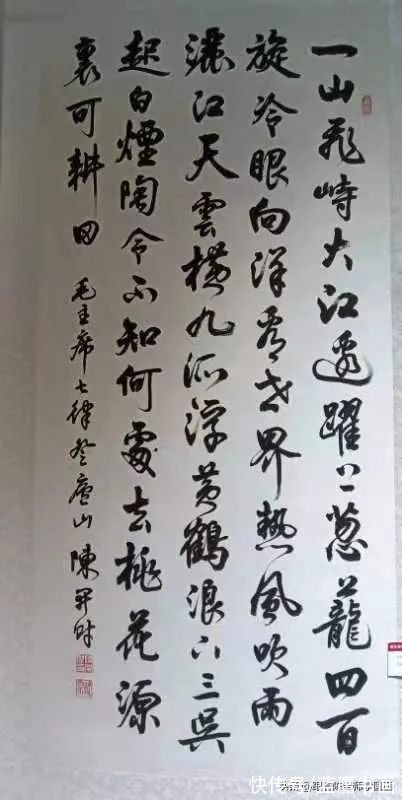 一山飛峙大江邊躍上葱蘢四百
旋冷眼向洋看世界熱風吹雨
灑江天雲橫九派浮黃鶴浪下三吳
起白煙陶令不知何處去桃花源
裏可耕田
毛主席七律登廬山 陳
快传号